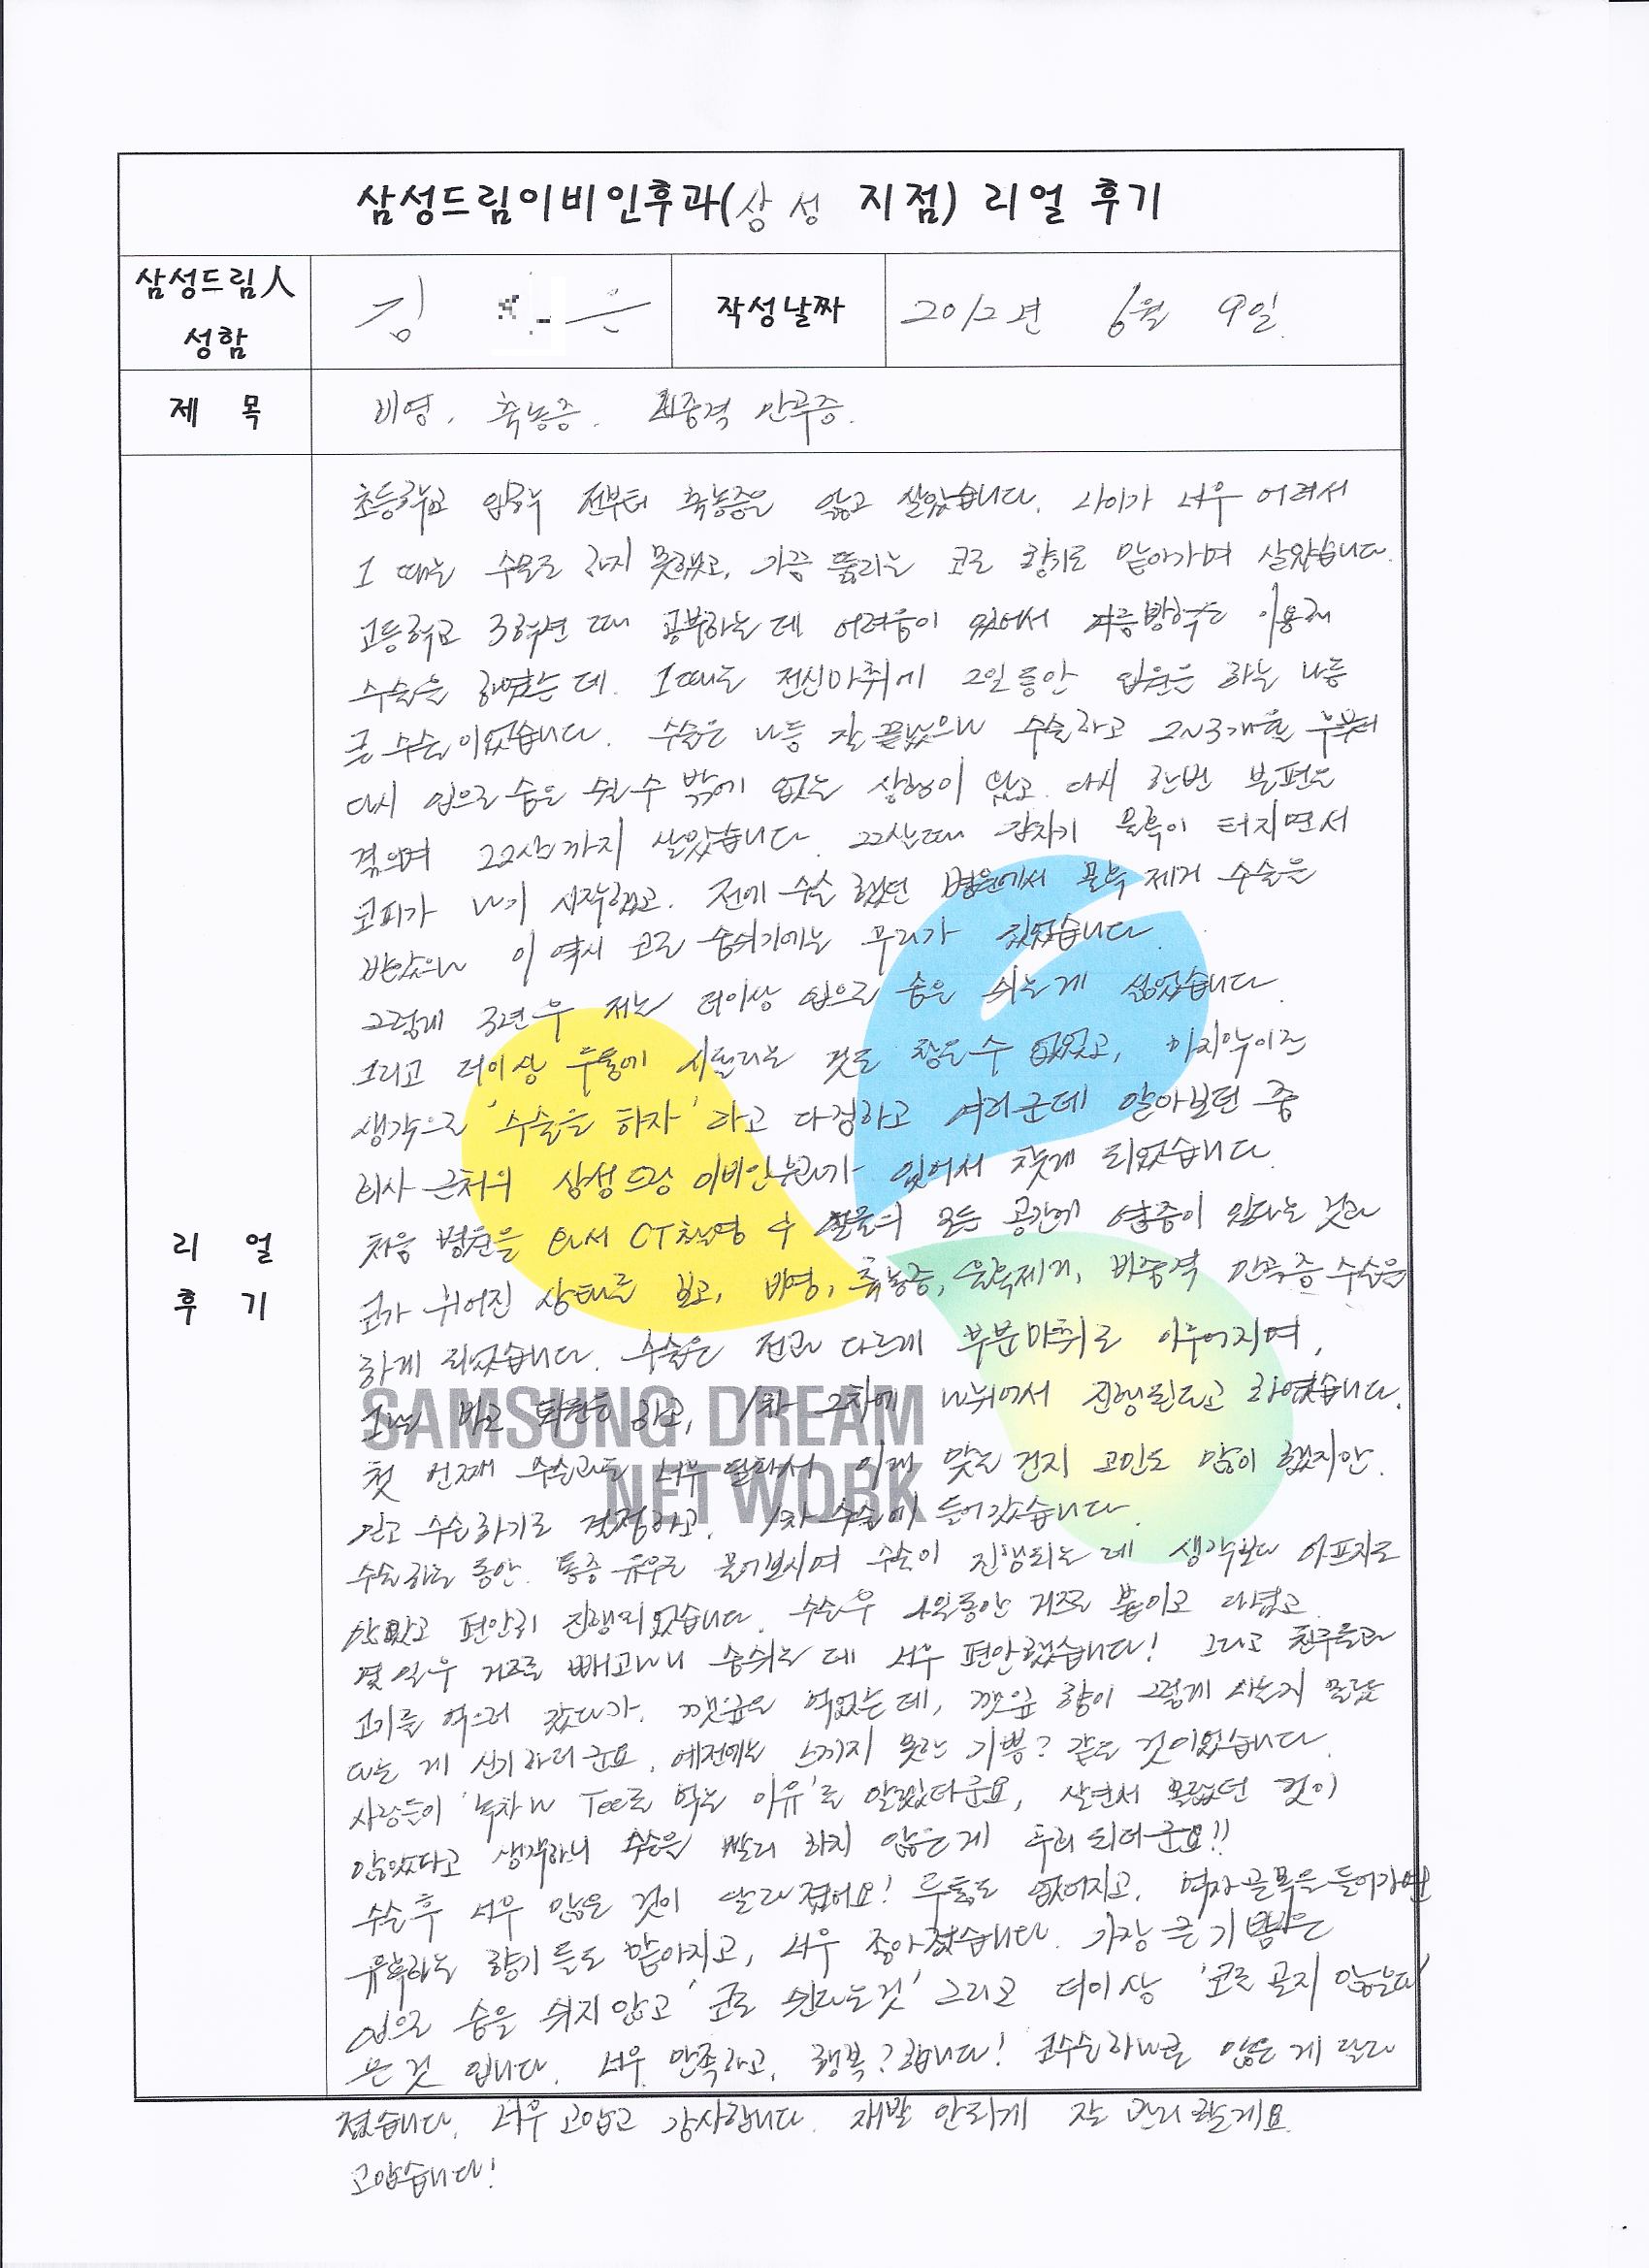 삼성드림이비인후과(삼성 지점) 리얼 후기
삼성드림人 성함
김 은
작성날짜
2012년 6월 9일.
제 목
비염. 축농증. 비중격 만곡증.
리 얼 후 기
초등학교 입학 전부터 축농증을 앓고 살았습니다. 나이가 너무 어려서
그 때는 수술도 하지 못했고, 가끔 뚫리는 코로 향기로 맡아가며 살았습니다.
고등학교 3학년 때 공부하는 데 어려움이 있어서 겨울방학을 이용해
수술을 하였는데. 그때는 전신마취에 2일동안 입원을 하는 나름
큰 수술이었습니다. 수술은 나름 잘 끝났으나 수술하고 2~3개월 후부터
다시 입으로 숨을 쉴 수 밖에 없는 상황이 왔고. 다시 한번 불편을
겪으며 22살까지 살았습니다. 22살때 갑자기 물혹이 터지면서
코피가 나기 시작했고. 전에 수술 했던 병원에서 물혹 제거 수술을
받았으나 이 역시 코로 숨쉬기에는 무리가 있었습니다.
그렇게 3년 후 저는 더이상 입으로 숨을 쉬는게 싫었습니다.
그리고 더이상 두통에 시달리는 것도 참을수 없었고, 마지막이란
생각으로 '수술을 하자' 라고 다짐하고 여러군데 알아보던 중
회사 근처의 삼성드림 이비인후과가 있어서 찾게 되었습니다.
처음 병원을 와서 CT촬영 후 얼굴의 모든 공간에 염증이 있다는 것과
코가 휘어진 상태를 보고, 비염, 축농증, 물혹제거, 비중격 만곡증 수술을
하게 되었습니다. 수술은 전과 다르게 부분마취로 이루어지며,
그날 바로 퇴원을 하고, 1차 2차에 나뉘어서 진행된다고 하였습니다.
첫 번째 수술과는 너무 달라서 이게 맞는 건지 고민도 많이 했지만.
믿고 수술하기로 결정하고. 1차 수술에 들어갔습니다.
수술하는 동안. 통증 유무를 물어보시며 수술이 진행되는데 생각보다 아프지도
않았고 편안히 진행되었습니다. 수술후 4일동안 거즈로 붙이고 다녔고.
몇 일후 거즈를 빼고나니 숨쉬는 데 너무 편안했습니다! 그리고 친구들과
고기를 먹으러 갔다가. 깻잎을 먹었는데, 깻잎 향이 그렇게 나는지 몰랐
다는 게 신기하더군요. 예전에는 느끼지 못한 기쁨? 같은 것이었습니다.
사람들이 '녹차나 Tee를 먹는 이유'를 알겠다군요, 살면서 몰랐던 것이
많았다고 생각하니 수술을 빨리 하지 않은게 후회되더군요!!
수술 후 너무 많은 것이 달라졌어요! 두통도 없어지고. 먹자골목을 들어가면
유혹하는 향기 들도 맡아지고, 너무 좋아졌습니다. 가장 큰 기쁨은
입으로 숨을 쉬지않고 '코로 쉰다는것' 그리고 더이상 '코를 골지 않는다'
는 것 입니다. 너무 만족하고, 행복? 합니다! 코수술하나로 많은 게 달라
졌습니다. 너무 고맙고 감사합니다. 재발 안하게 잘 관리할게요.
고맙습니다!
SAMSUNG DREAM
NETWORK